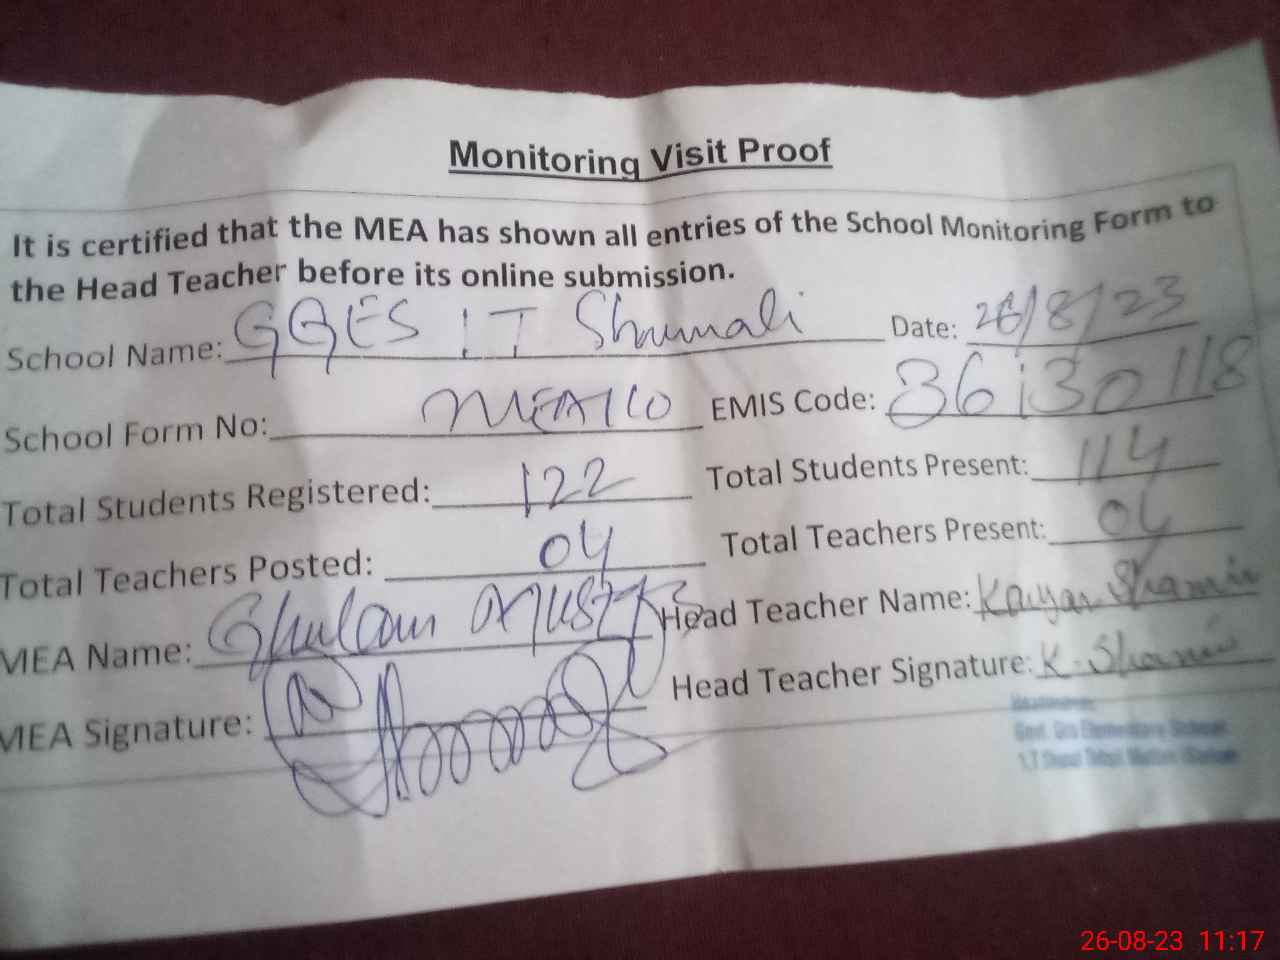 Monitoring Visit Proof
It is certified that the MEA has shown all entries of the School Monitoring Form to
the Head Teacher before its online submission.
School Name: GGES 1T Shumali Date: 26/8/23
School Form No: MEA1CO EMIS Code: 36130118
Total Students Registered: 122 Total Students Present: 114
Total Teachers Posted: 04 Total Teachers Present: 04
MEA Name: Ghulam Mustafa Head Teacher Name: Shamim
MEA Signature: Head Teacher Signature: K. Shamim
Govt. Elementary School
26-08-23 11:17